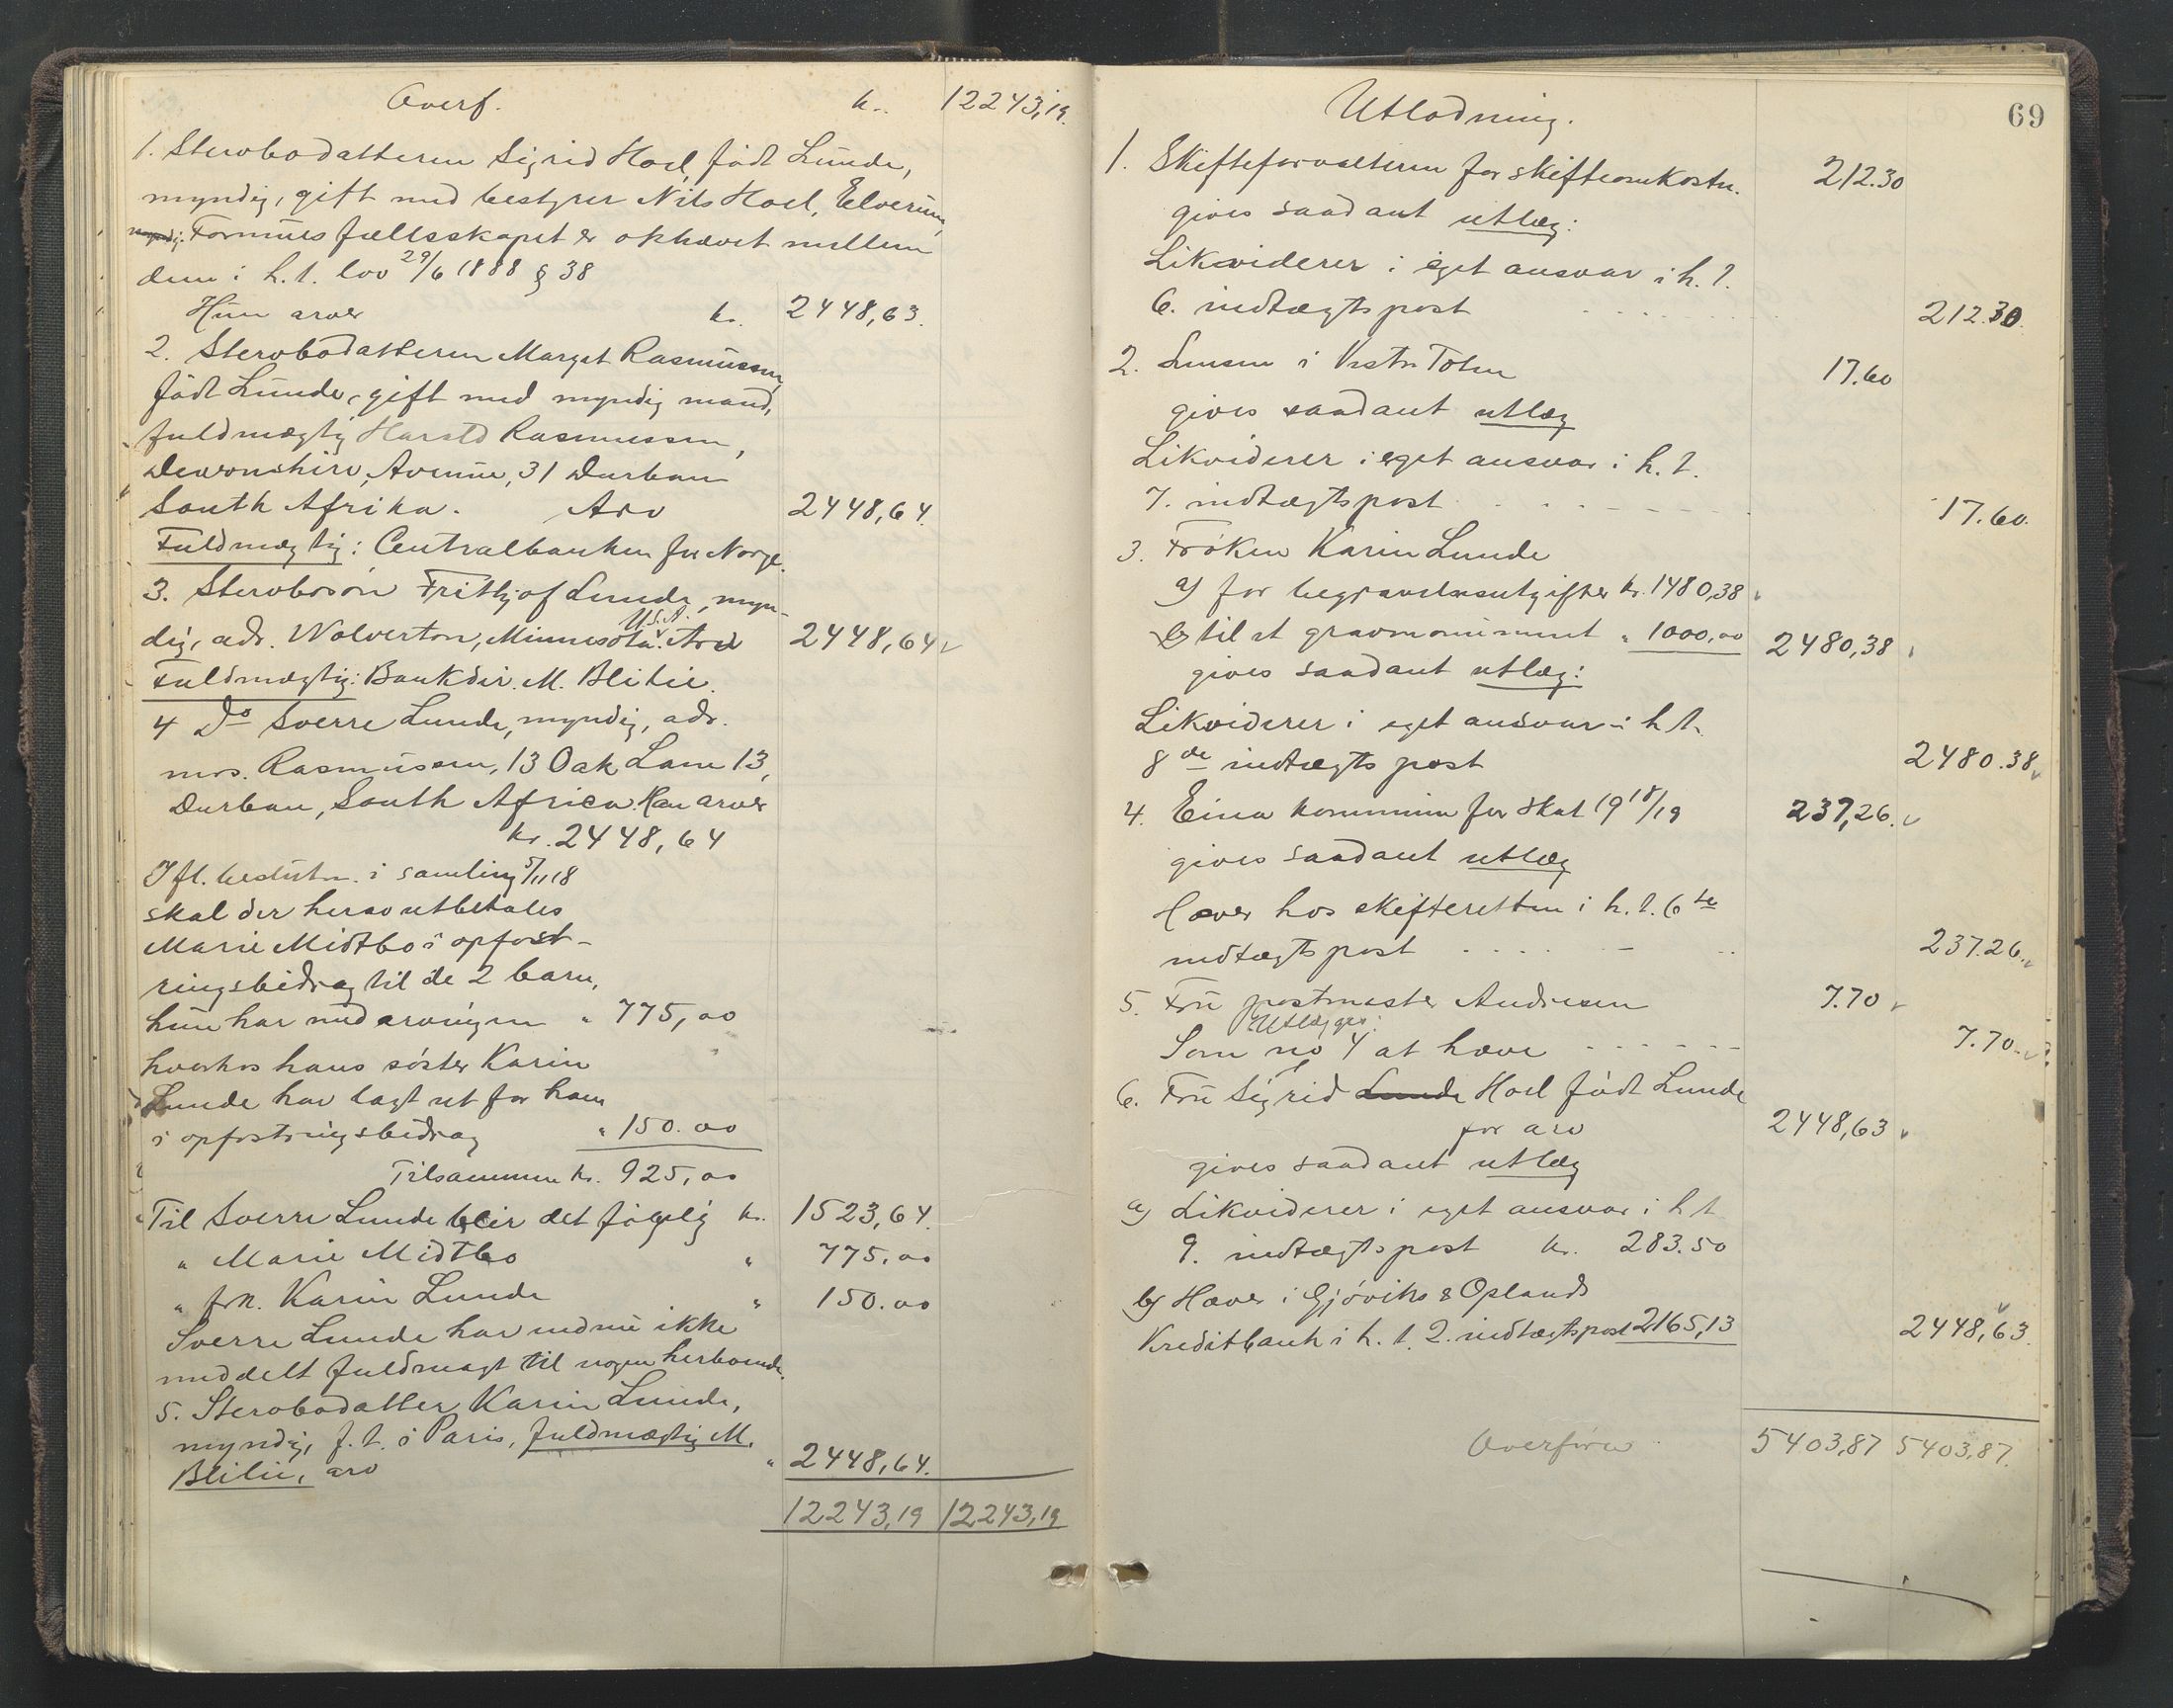 Overf. kr. 12243,19.
1. Stervbodatteren Sigrid Hoel, født Lunde,
myndig, gift med bestyrer Nils Hoel, Elverum,
Formues fællesskapet er ophævet mellem
dem i h. t. lov 29/6 1888 § 38
Hun arver kr. 2448,63.
2. Stervbodatteren Margit Rasmussen,
født Lunde, gift med myndig mand,
fuldmægtig Harald Rasmussen,
Dewonshire, Avenue, 31 Durban
South Afrika. Arv 2448,64.
Fuldmægtig: Centralbanken for Norge.
3. Stervbosøn Frithjof Lunde, myn-
dig, adr. Wolverton, Minnesota U.S.A. Arv 2448,64
Fuldmægtig: Bankdir. M. Blilie.
4 Do Sverre Lunde, myndig, adr.
mrs. Rasmussen, 13 Oak Lane 13,
Durban, South Africa. Han arver
kr. 2448,64
Ifl. beslutn. i samling 5/11 18
skal der herav utbetales
Marie Midtbø i opfost-
ringsbidrag til de 2 barn,
hun har med arvingen " 775,00
hvorhos hans søster Karin
Lunde har lagt ut for ham
i opfostringsbidrag " 150.00
Tilsammen kr. 925,00
Til Sverre Lunde blir det følgelig kr. 1523,64.
" Marie Midtbø " 775.00
" frk. Karin Lunde " 150.00
Sverre Lunde har endnu ikke
meddelt fuldmagt til nogen herboende.
5. Stervbodatter Karin Lunde,
myndig, f. t. i Paris, fuldmægtig M.
Blilie, arv " 2448,64.
12243,19 12243,19
69
Utlodning.
1. Skifteforvalteren for skifteomkostn. 212.30
gives saadant utlæg:
Likviderer i eget ansvar i h. t.
6. indtægtspost 212.30.
2. Lensm i Vestr Toten 17.60
gives saadant utlæg
Likviderer i eget ansvar i h. t.
7. indtægtspost 17.60.
3. Frøken Karin Lunde
a) for begravelsesutgifter kr. 1480,38
b) til et gravmonument " 1000,00 2480,38
gives saadant utlæg:
Likviderer i eget ansvar i h t.
8de indtægts post 2480.38
4. Eina kommune for skat 1918/19 237,26.
gives saadant utlæg
Hæver hos skifteretten i h. t. 6te
indtægtspost 237.26.
5. Fru postmester Andresen 7.70
Utlægges:
Som no 4 at hæve 7.70
6. Fru Sigrid Lunde Hoel født Lunde
for arv 2448,63
gives saadant utlæg
a) Likviderer i eget ansvar i h t
9. indtægtspost kr. 283.50
b) Hæver i Gjøviks & Oplands
Kreditbank i h. t. 2. indtægtspost 2165,13 2448,63.
Overføres 5403,87 5403,87.